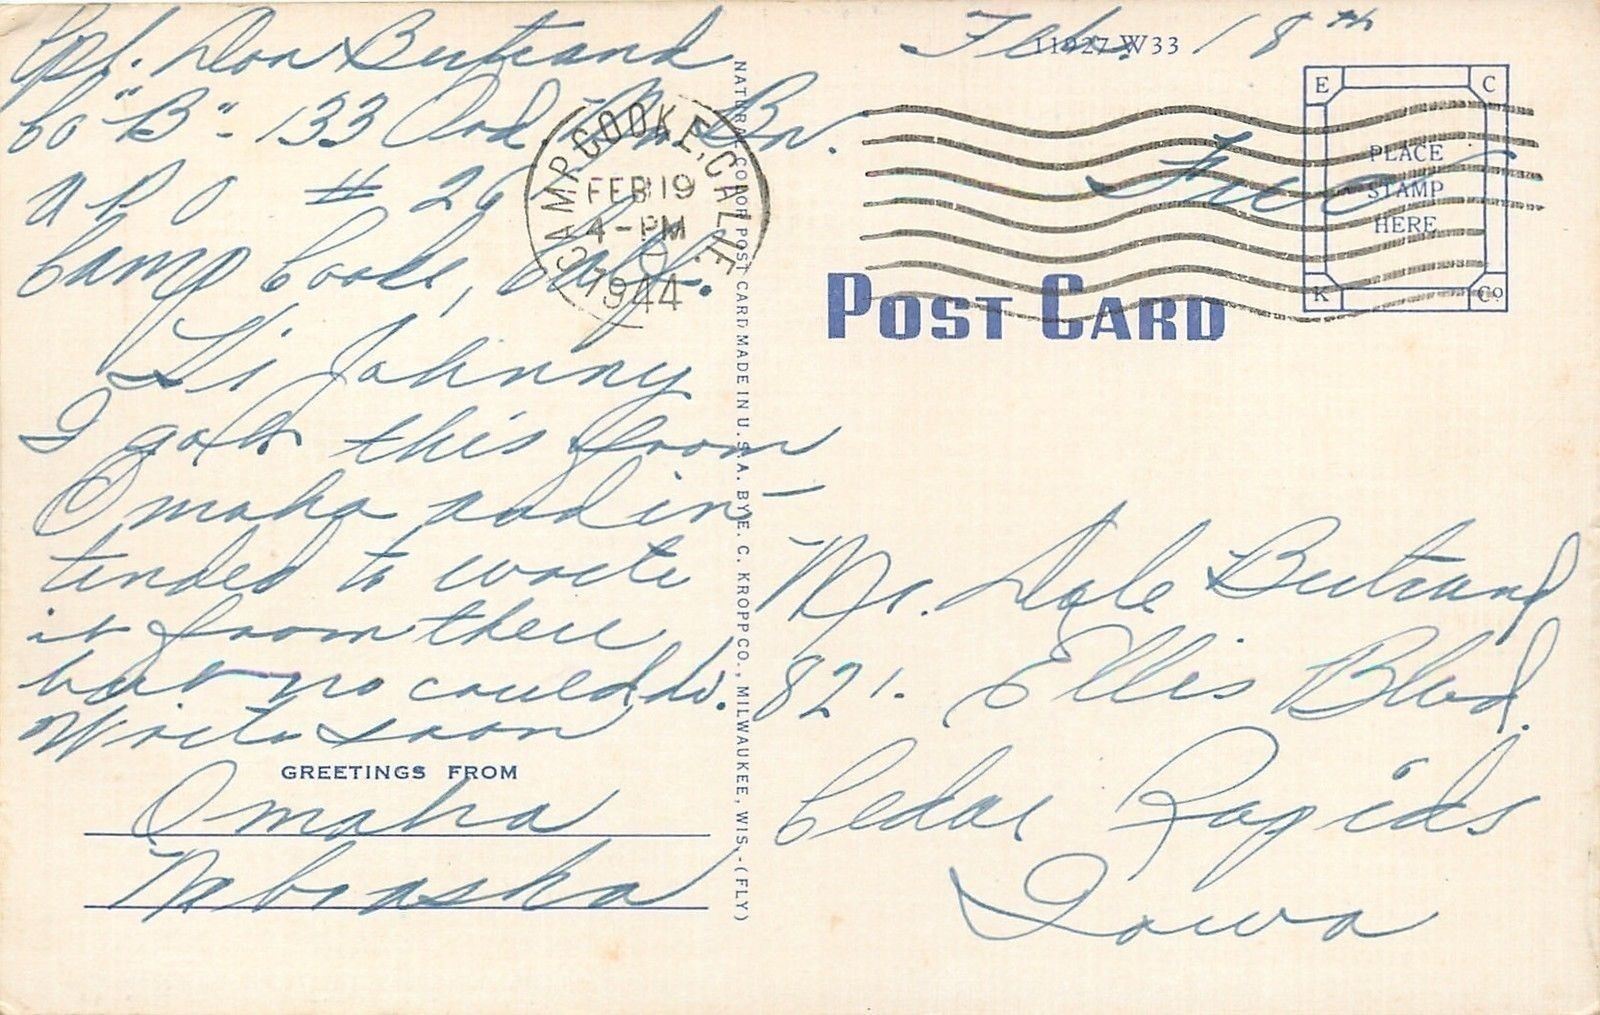 Cpl. Don Bertrand
Co "B" - 133 Ord Mn Bn.
A P O # 26
Camp Cooke, Calif.
Hi Johnny
I got this from
Omaha and in-
tended to write
it from there
but no could do.
Write soon
GREETINGS FROM
Omaha
Nebraska
NATURAL COLOR POST CARD MADE IN U. S. A. BY E. C. KROPP CO., MILWAUKEE, WIS. - (FLY)
CAMP COOKE, CALIF.
FEB 19
4-PM
1944
Feb. 18th
11927 W33
Free
E C
PLACE
STAMP
HERE
K Co
POST CARD
Mr. Dale Bertrand
821. Ellis Blvd.
Cedar Rapids
Iowa